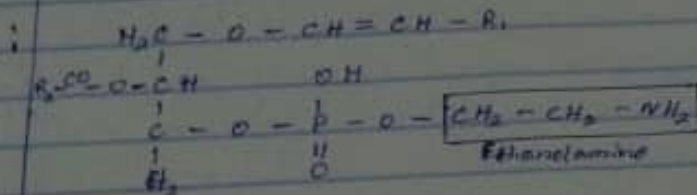 :
H₂C - O - CH = CH - R₁
R₂-CO-O-CH OH
C - O - P - O - CH₂ - CH₂ - NH₂
H₂ O
Ethanolamine